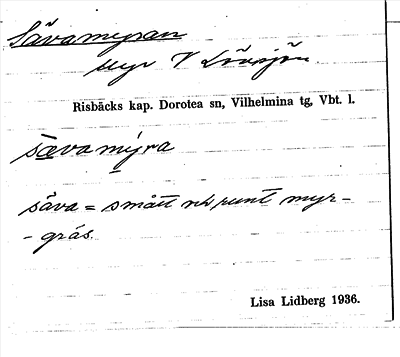 Såvamyran
myr V Lövsjön
Risbäcks kap. Dorotea sn, Vilhelmina tg, Vbt. l.
sævamýra
såva = smått och runt myr-
- gräs.
Lisa Lidberg 1936.